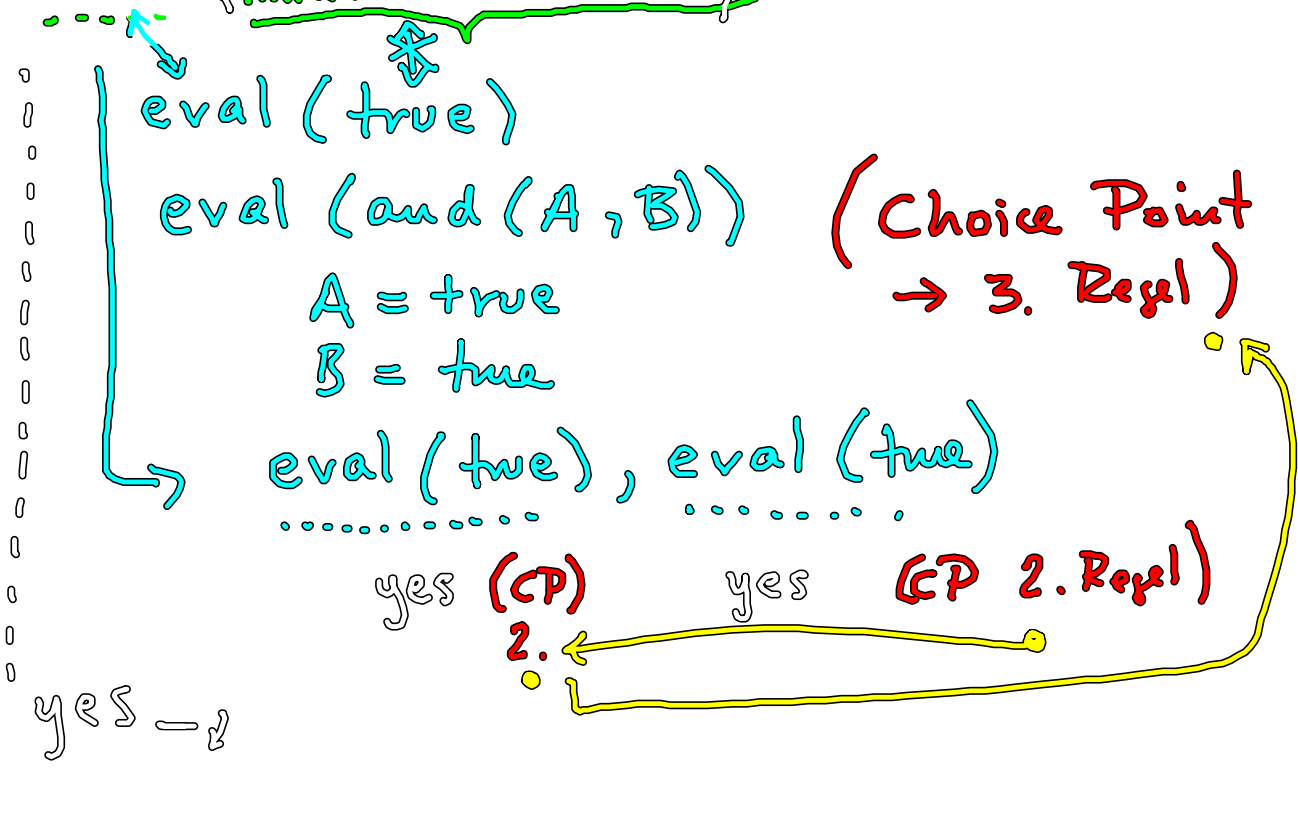 eval (true)
eval (and (A, B))
(Choice Point
→ 3. Regel)
A = true
B = true
eval (true), eval (true)
yes (CP) yes (CP 2. Regel)
2.
yes –